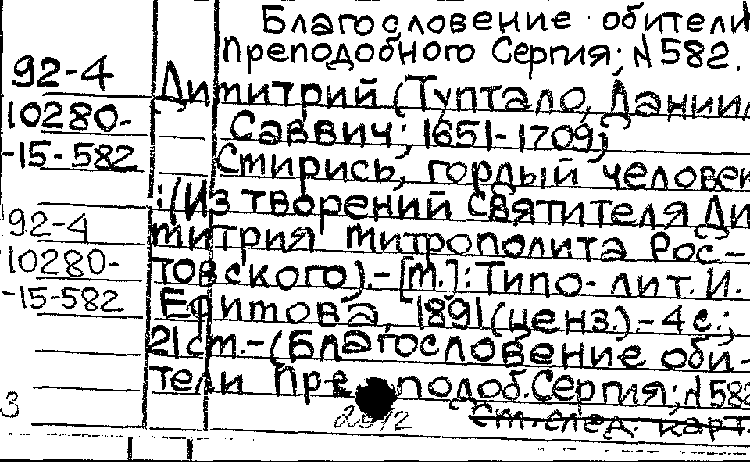 Благословение обители
Преподобного Сергия; N 582.
92-4
10280-
-15-582
Димитрий (Туптало, Даниил
Саввич; 1651-1709)
Смирись, гордый человек
:(Из творений Святителя Ди-
митрия Митрополита Рос-
товского).-[М.]: Типо-лит. И.
Ефимова, 1891 (ценз.).- 4 с.;
21см.-(Благословение оби-
тели Преподоб. Сергия; N 582
92-4
10280-
-15-582
3
см. след. карт.